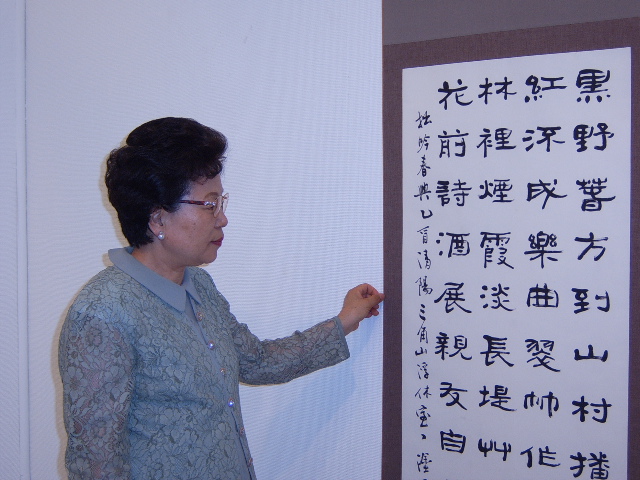 黒野方到山村播
紅成樂曲翠作
林裡煙霞淡長堤艸
花前詩酒展親友自
拙吟春興乙酉清陽三角山浮休室